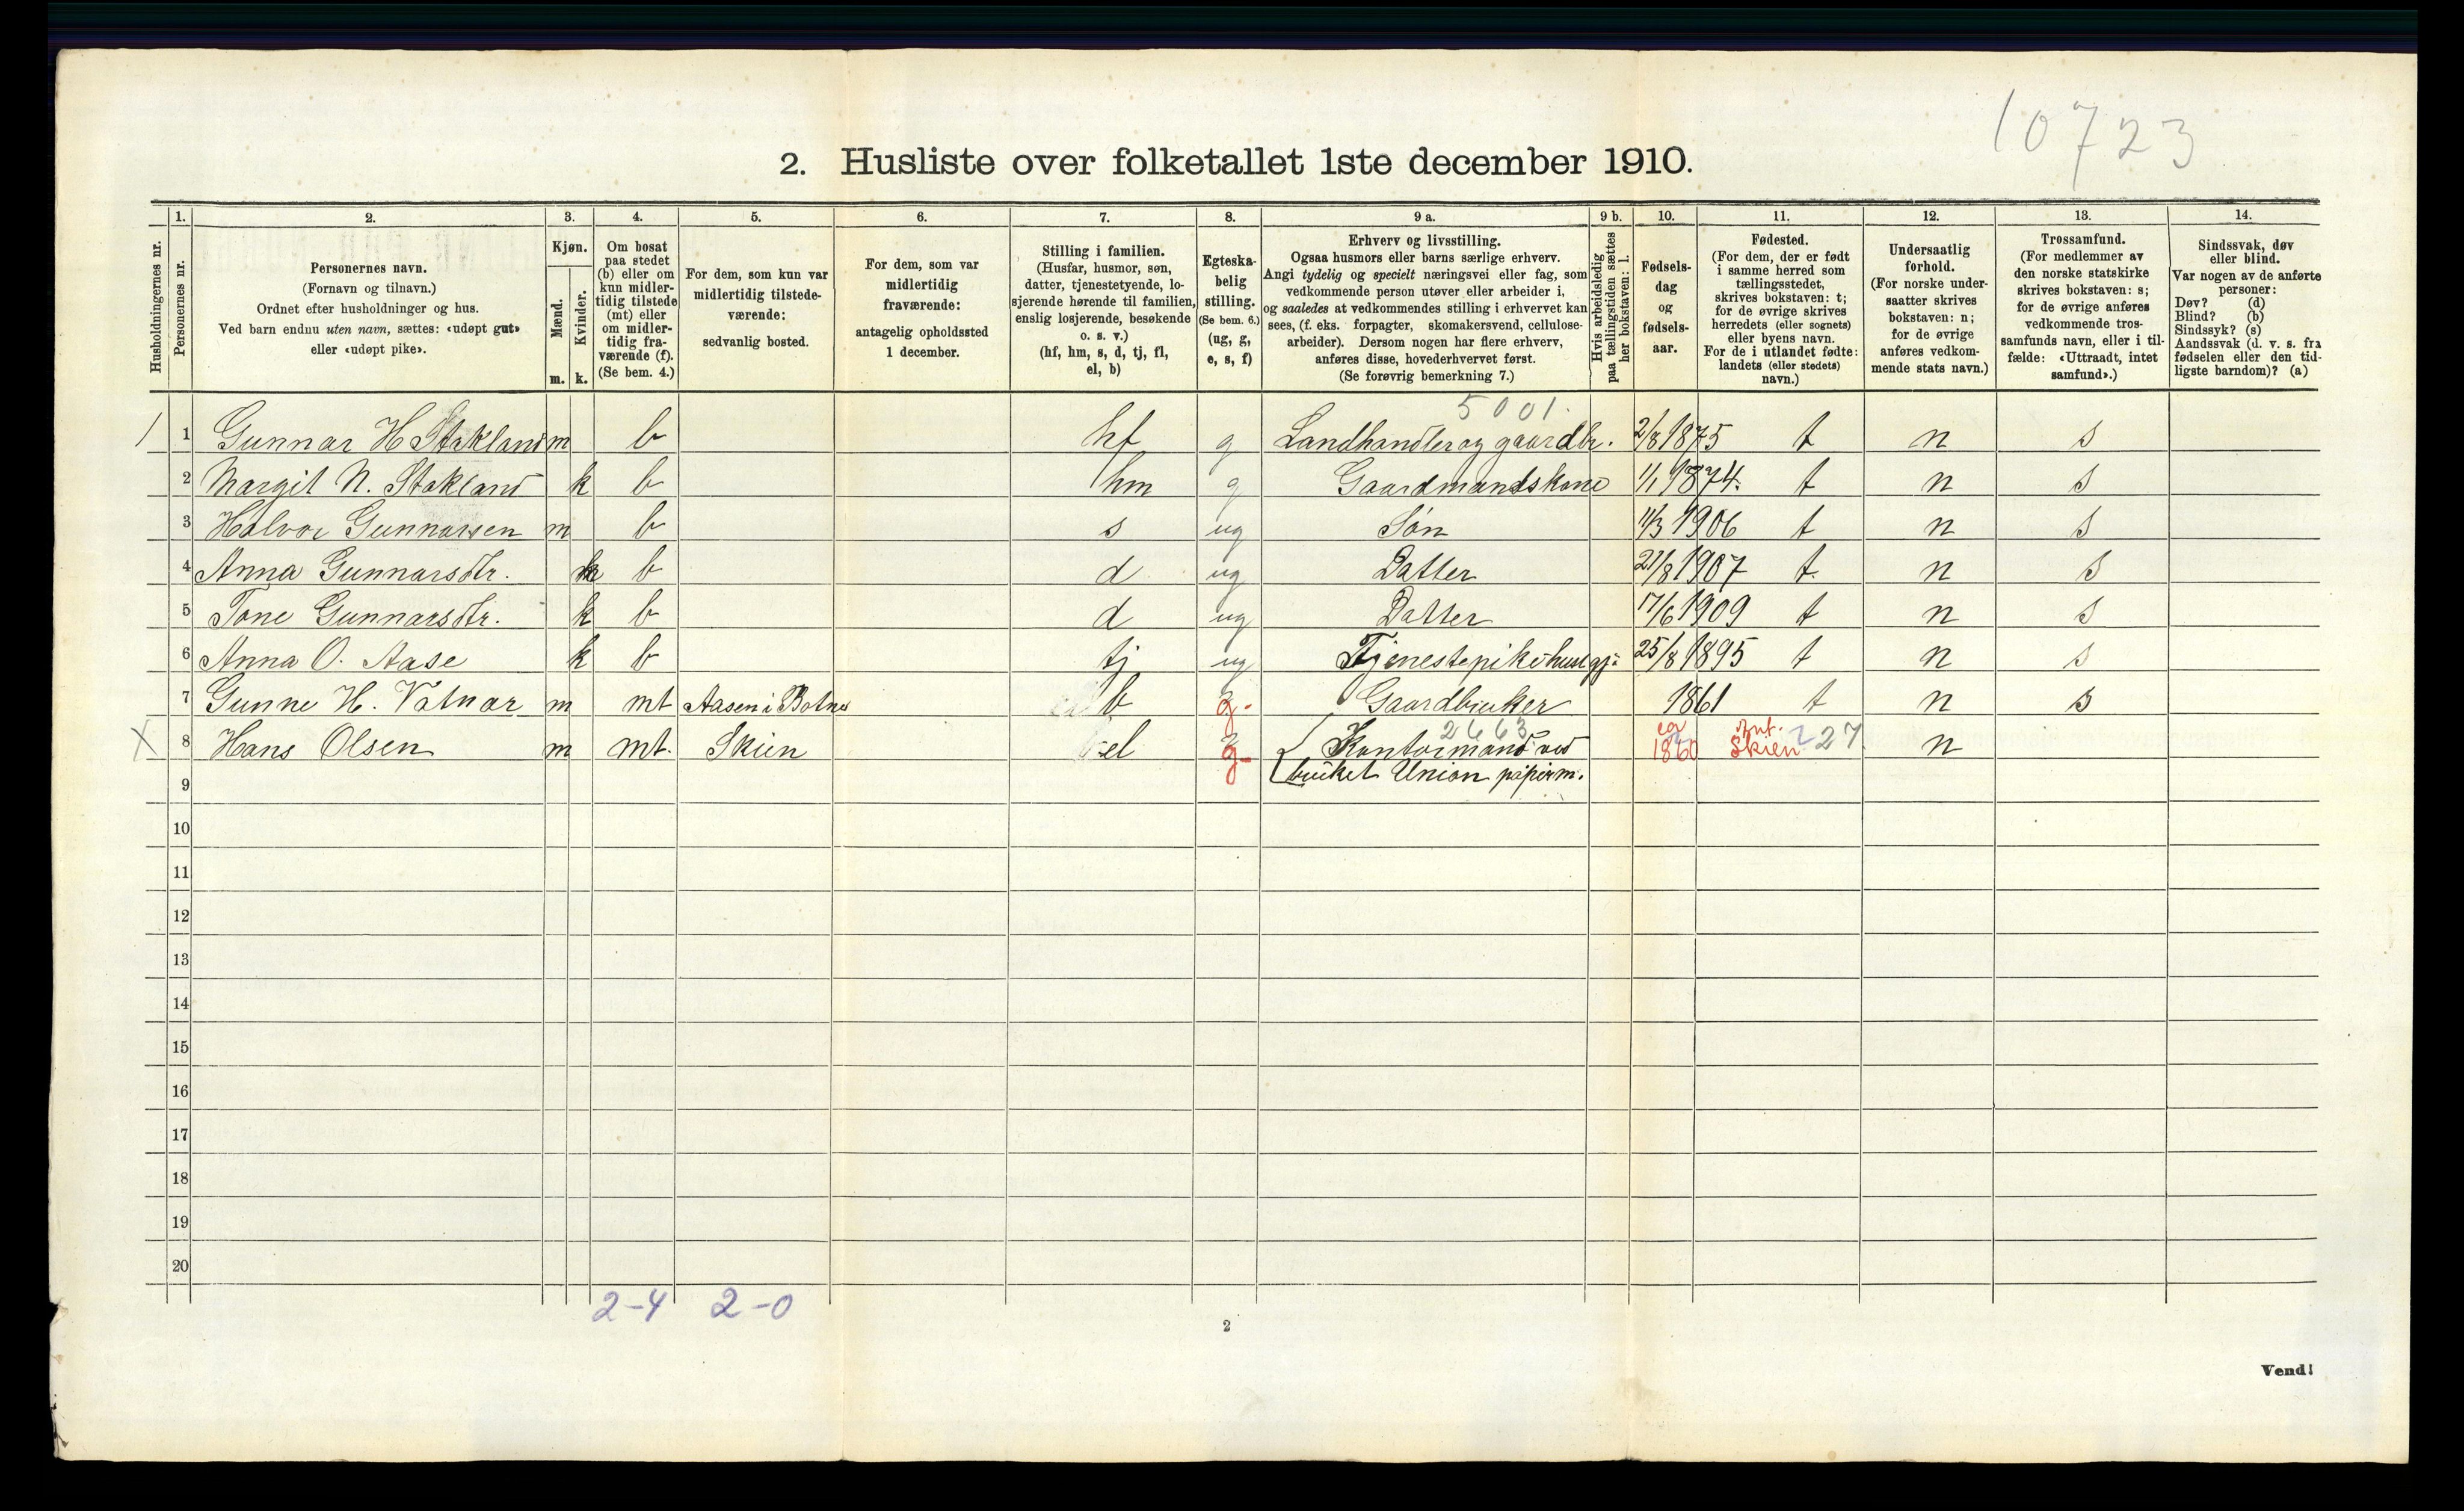 10723
2. Husliste over folketallet 1ste december 1910.
Husholdningernes nr.
1.
Personernes nr.
2.
Personernes navn.
(Fornavn og tilnavn.)
Ordnet efter husholdninger og hus.
Ved barn endnu uten navn, sættes: «udøpt gut»
eller «udøpt pike».
3.
Kjøn.
Mænd.
Kvinder.
m. k.
4.
Om bosat
paa stedet
(b) eller om
kun midler-
tidig tilstede
(mt) eller
om midler-
tidig fra-
værende (f).
(Se bem. 4.)
5.
For dem, som kun var
midlertidig tilstede-
værende:
sedvanlig bosted.
6.
For dem, som var
midlertidig
fraværende:
antagelig opholdssted
1 december.
7.
Stilling i familien.
(Husfar, husmor, søn,
datter, tjenestetyende, lo-
sjerende hørende til familien,
enslig losjerende, besøkende
o. s. v.)
(hf, hm, s, d, tj, fl,
el, b)
8.
Egteska-
belig
stilling.
(Se bem. 6.)
(ug, g,
e, s, f)
9 a.
Erhverv og livsstilling.
Ogsaa husmors eller barns særlige erhverv.
Angi tydelig og specielt næringsvei eller fag, som
vedkommende person utøver eller arbeider i,
og saaledes at vedkommendes stilling i erhvervet kan
sees, (f. eks. forpagter, skomakersvend, cellulose-
arbeider). Dersom nogen har flere erhverv,
anføres disse, hovederhvervet først.
(Se forøvrig bemerkning 7.)
9 b.
Hvis arbeidsledig
paa tællingstiden sættes
her bokstaven: l.
10.
Fødsels-
dag
og
fødsels-
aar.
11.
Fødested.
(For dem, der er født
i samme herred som
tællingsstedet,
skrives bokstaven: t;
for de øvrige skrives
herredets (eller sognets)
eller byens navn.
For de i utlandet fødte:
landets (eller stedets)
navn.)
12.
Undersaatlig
forhold.
(For norske under-
saatter skrives
bokstaven: n;
for de øvrige
anføres vedkom-
mende stats navn.)
13.
Trossamfund.
(For medlemmer av
den norske statskirke
skrives bokstaven: s;
for de øvrige anføres
vedkommende tros-
samfunds navn, eller i til-
fælde: «Uttraadt, intet
samfund».)
14.
Sindssvak, døv
eller blind.
Var nogen av de anførte
personer:
Døv? (d)
Blind? (b)
Sindssyk? (s)
Aandssvak (d. v. s. fra
fødselen eller den tid-
ligste barndom)? (a)
5001.
1 1 Gunnar H Stakland m b hf g Landhandler og gaardbr. 2/8 1875 t n s
2 Margit N. Stakland k b hm g Gaardmandskone 1/1 1874. t n s
3 Halvor Gunnarsen m b s ug Søn 11/3 1906 t n s
4 Anna Gunnarsdtr. k b d ug Datter 21/8 1907 t. n s
5 Tone Gunnarsdtr. k b d ug Datter 17/6 1909 t n s
6 Anna O. Aase k b tj ug Tjenestepike husgj. 25/8 1895 t n s
7 Gunne H. Vatnar m mt Aasen i Botne b g. Gaardbruker 1861 t n s
2663
X 8 Hans Olsen m mt. Skien el g. Kontormand ved 1860 Skien 227 n
9 bruket Union papirm.
10
11
12
13
14
15
16
17
18
19
20
2-4 2-0
2
Vend!